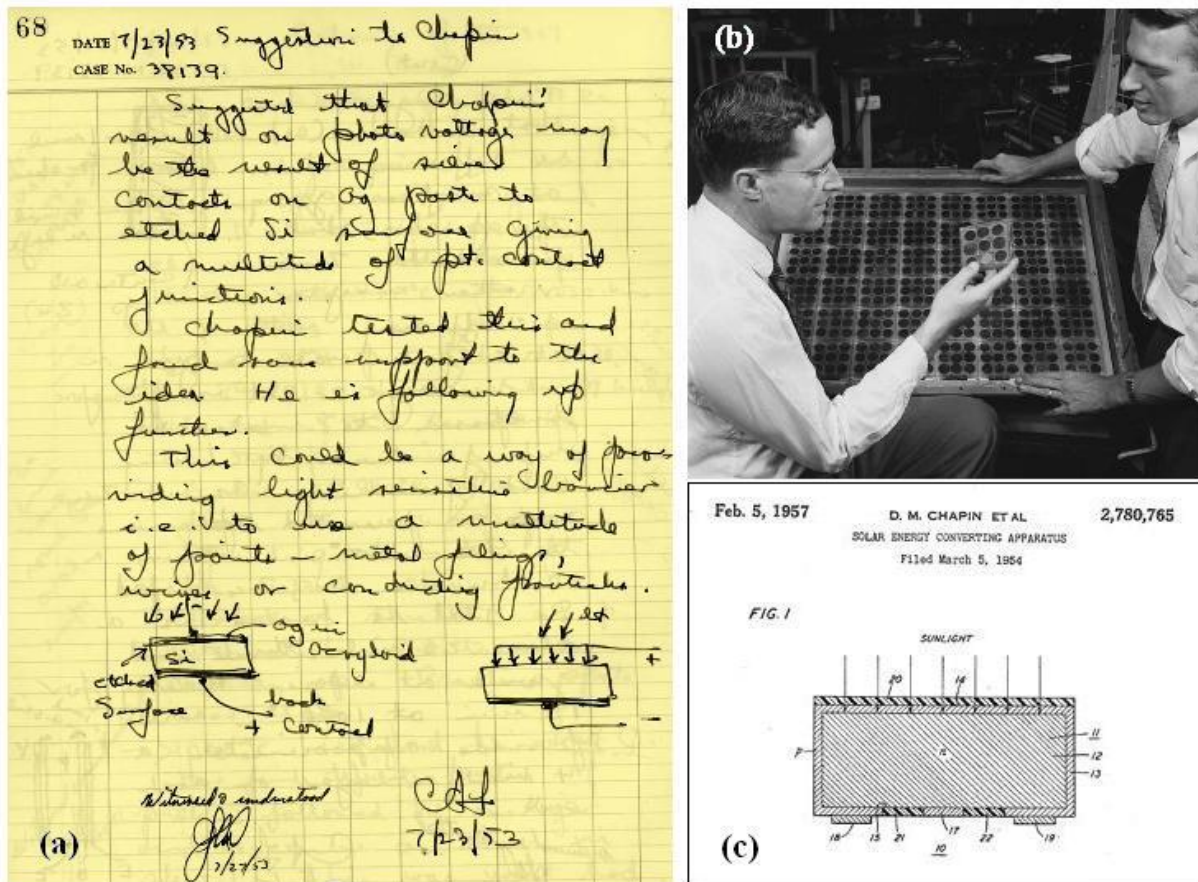 68
DATE 7/23/53 Suggestion to Chapin
CASE No. 38139.
Suggested that Chapin's
result on photo voltage may
be the result of silver
contacts on Ag paste to
etched Si surface giving
a multitude of pt. contact
junctions.
Chapin tested this and
found some support to the
idea. He is following up
further.
This could be a way of pro-
viding light sensitive barrier
i.e. to use a multitude
of points - metal filings,
wires or conducting particles.
Ag in
Acryloid
Si
etched
Surface
back
Contact
+
lt
+
-
Witnessed & understood
7/27/53
7/23/53
(a)
(b)
Feb. 5, 1957
D. M. CHAPIN ET AL
2,780,765
SOLAR ENERGY CONVERTING APPARATUS
Filed March 5, 1954
FIG. 1
SUNLIGHT
20
14
11
P
n
12
13
18
15
21
17
22
19
10
(c)